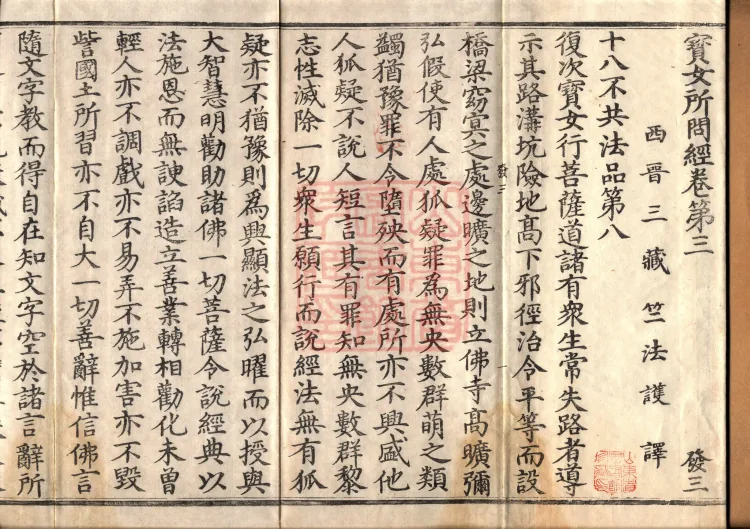 寶女所問經卷第三 發三
西晉三藏竺法護譯
十八不共法品第八
復次寶女行菩薩道諸有衆生常失路者導
示其路溝坑險地高下邪徑治令平等而設
橋梁窈冥之處邊曠之地則立佛寺高曠彌
發三
弘假使有人處狐疑罪為無央數群萌之類
蠲猶豫罪不令墮殃而有處所亦不興盛他
人狐疑不說人短言其有罪知無央數群黎
志性滅除一切衆生願行而說經法無有狐
疑亦不猶豫則為興顯法之弘曜而以授與
大智慧明勸助諸佛一切菩薩令說經典以
法施恩而無諛諂造立善業轉相勸化未曾
輕人亦不調戲亦不易弄不施加害亦不毀
訾國土所習亦不自大一切善辭惟信佛言
隨文字教而得自在知文字空於諸言辭所